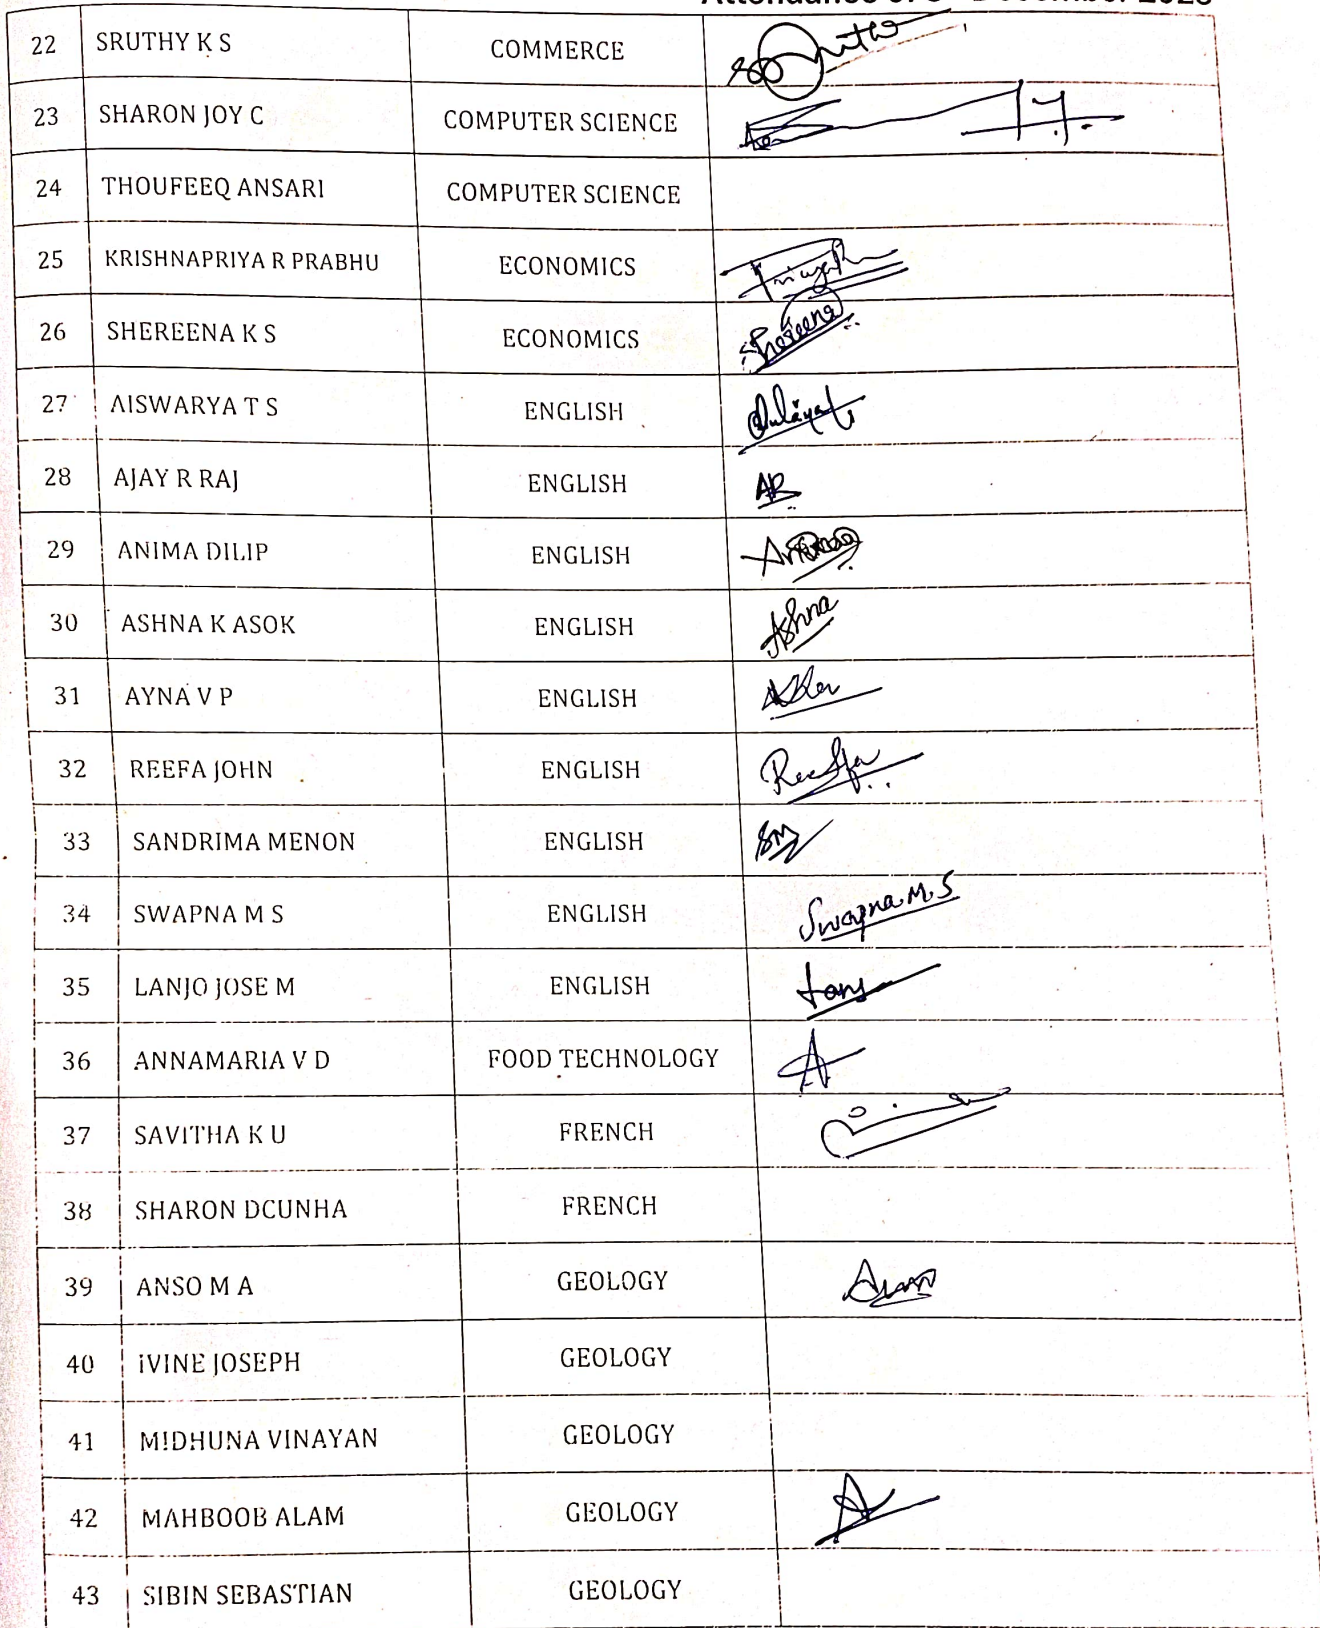 22 SRUTHY K S COMMERCE
23 SHARON JOY C COMPUTER SCIENCE
24 THOUFEEQ ANSARI COMPUTER SCIENCE
25 KRISHNAPRIYA R PRABHU ECONOMICS
26 SHEREENA K S ECONOMICS Shereena
27 AISWARYA T S ENGLISH
28 AJAY R RAJ ENGLISH AR
29 ANIMA DILIP ENGLISH
30 ASHNA K ASOK ENGLISH Ashna
31 AYNA V P ENGLISH
32 REEFA JOHN ENGLISH Reefa
33 SANDRIMA MENON ENGLISH SM
34 SWAPNA M S ENGLISH Swapna M.S
35 LANJO JOSE M ENGLISH
36 ANNAMARIA V D FOOD TECHNOLOGY
37 SAVITHA K U FRENCH
38 SHARON DCUNHA FRENCH
39 ANSO M A GEOLOGY
40 IVINE JOSEPH GEOLOGY
41 MIDHUNA VINAYAN GEOLOGY
42 MAHBOOB ALAM GEOLOGY
43 SIBIN SEBASTIAN GEOLOGY